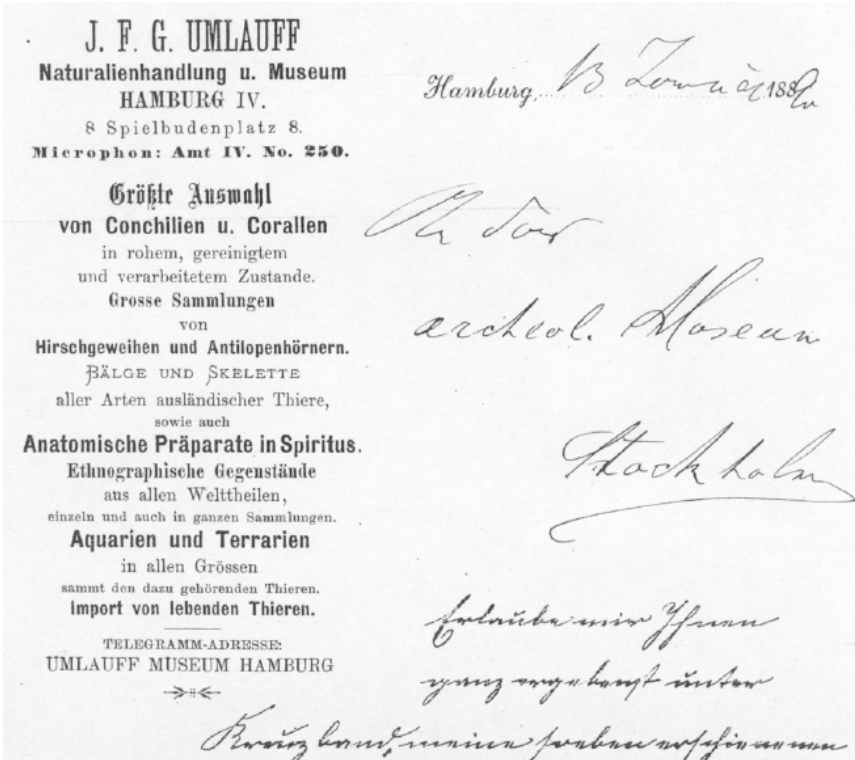 J. F. G. UMLAUFF
Naturalienhandlung u. Museum
HAMBURG IV.
8 Spielbudenplatz 8.
Microphon: Amt IV. No. 250.
Größte Auswahl
von Conchilien u. Corallen
in rohem, gereinigtem
und verarbeitetem Zustande.
Grosse Sammlungen
von
Hirschgeweihen und Antilopenhörnern.
BÄLGE UND SKELETTE
aller Arten ausländischer Thiere,
sowie auch
Anatomische Präparate in Spiritus.
Ethnographische Gegenstände
aus allen Welttheilen,
einzeln und auch in ganzen Sammlungen.
Aquarien und Terrarien
in allen Grössen
sammt den dazu gehörenden Thieren.
Import von lebenden Thieren.
TELEGRAMM-ADRESSE:
UMLAUFF MUSEUM HAMBURG
Hamburg, 13 188
archeol. Museum
Stockholm
Erlaube mir Ihnen
ganz ergebenst unter
Kreuzband, meine soeben erschienenen